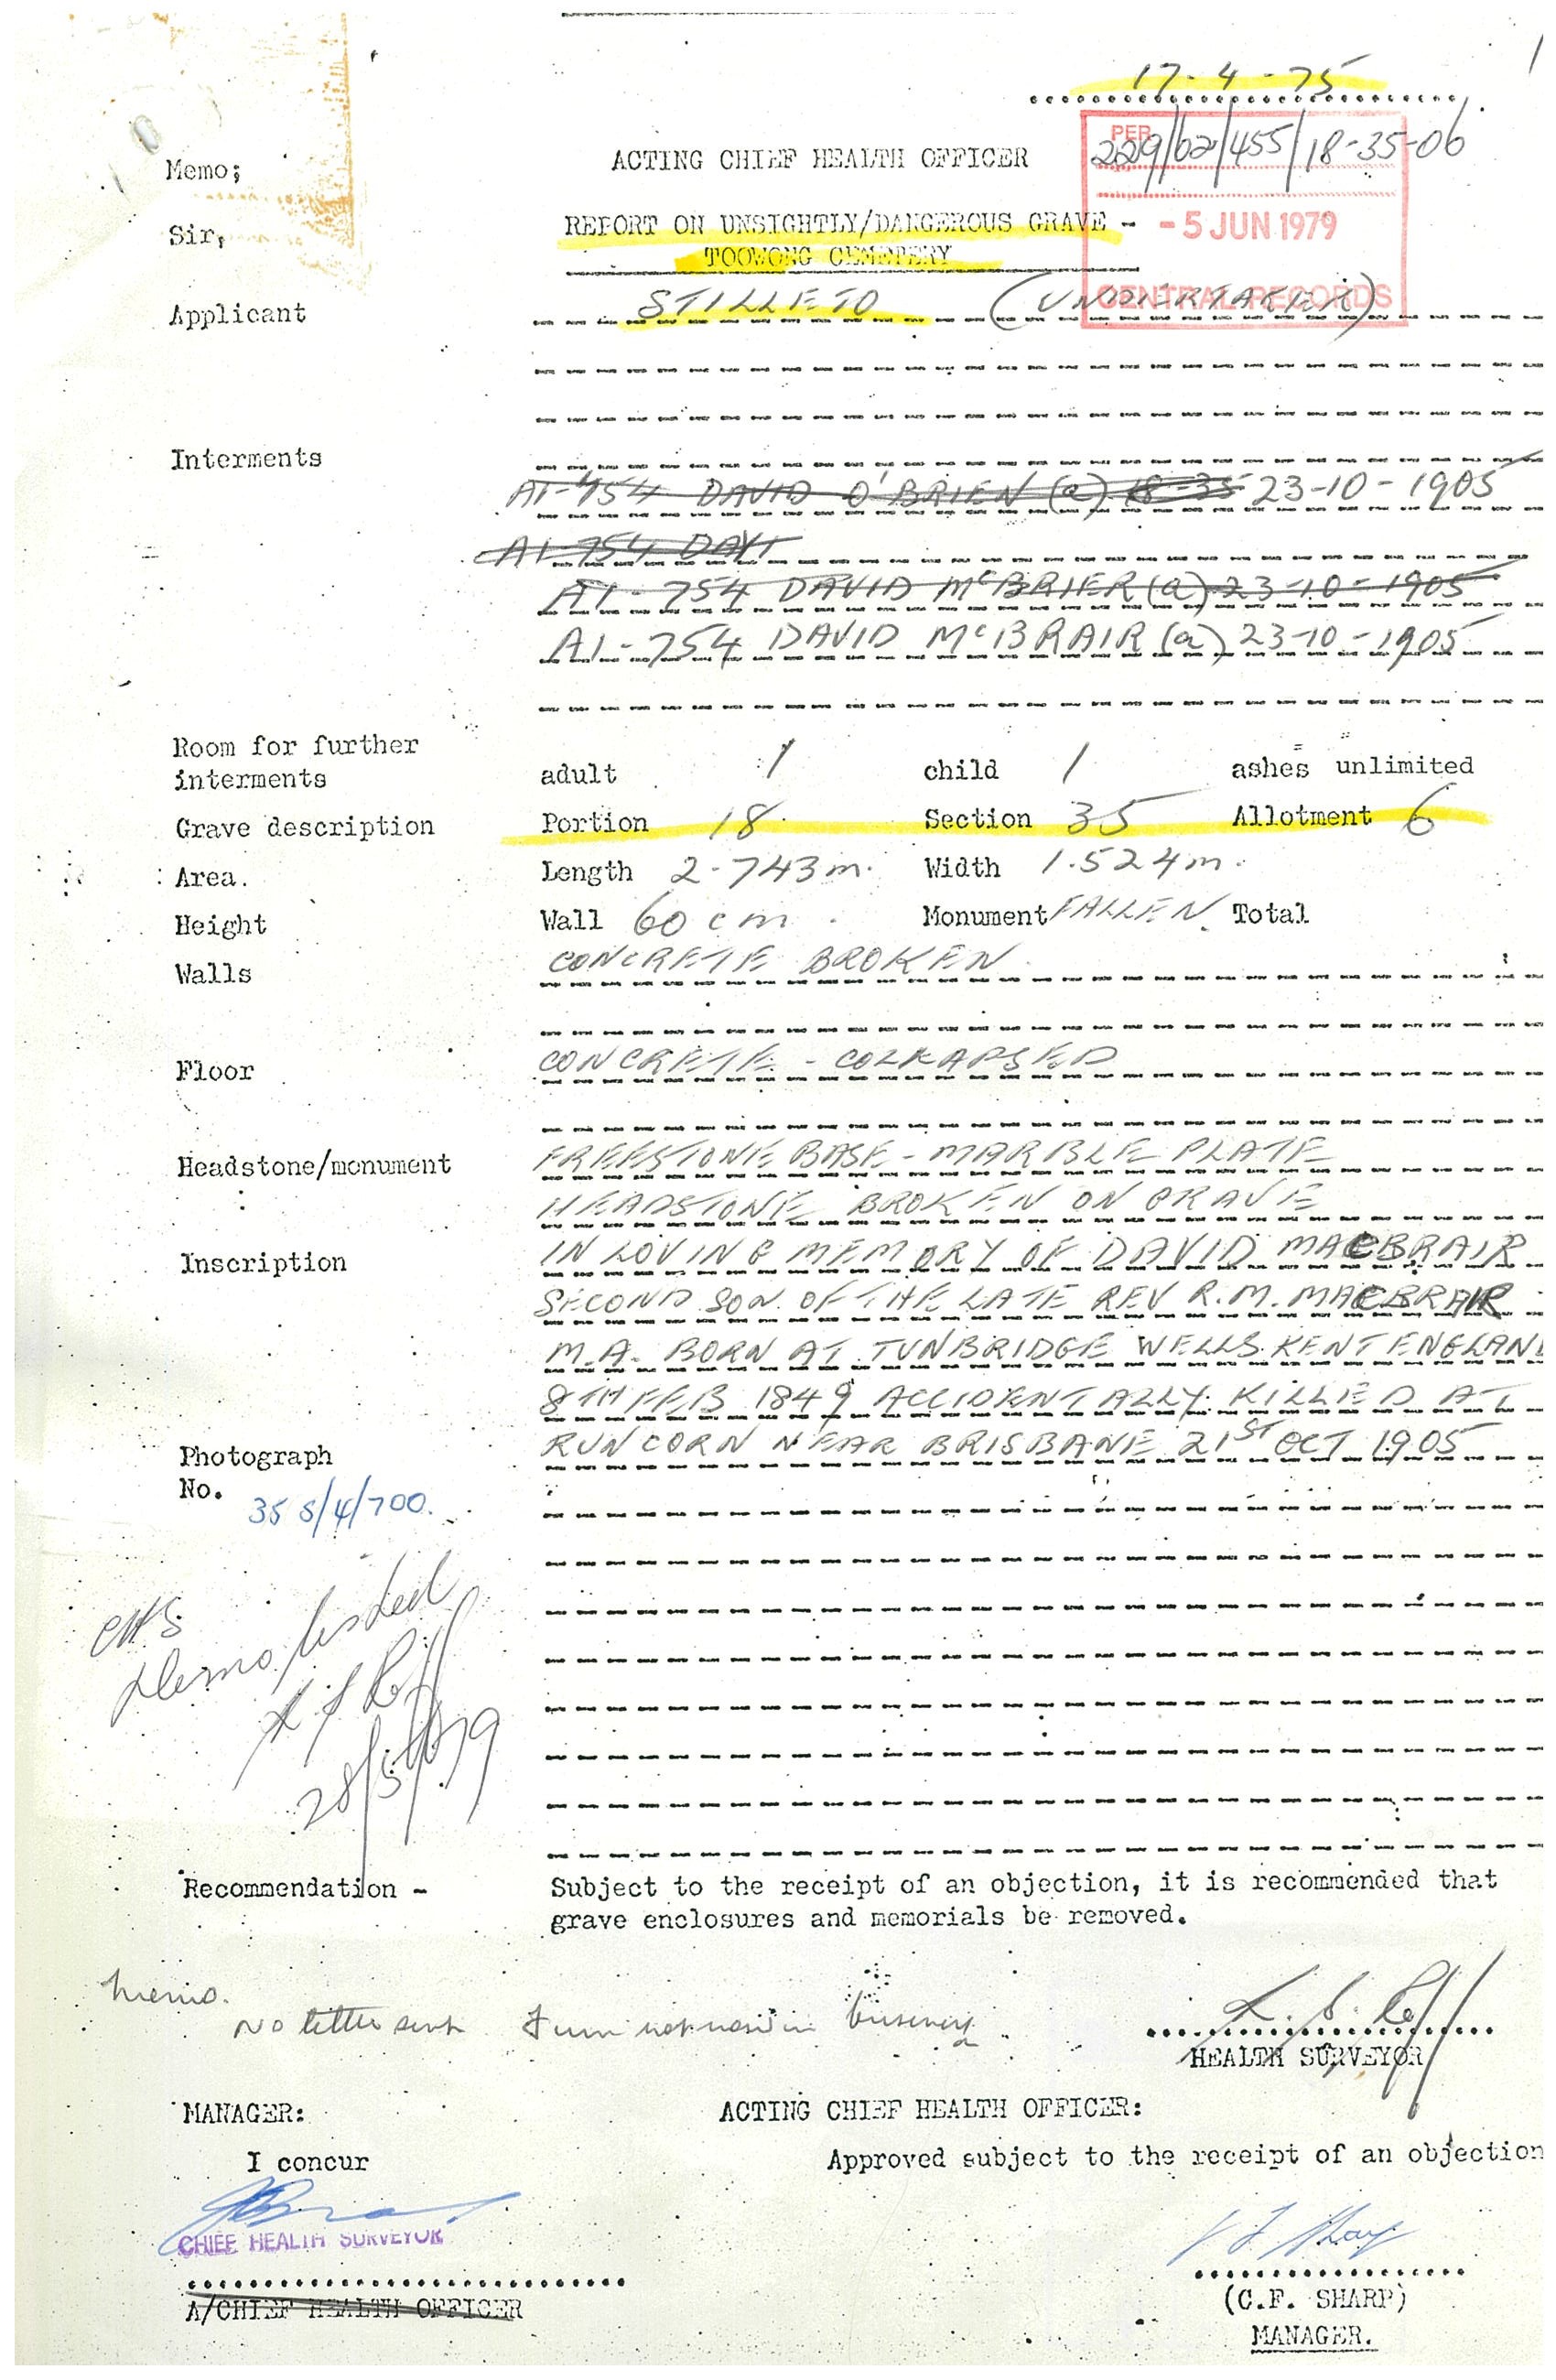 17-4-75
PER
229/62/455/18-35-06
Memo; ACTING CHIEF HEALTH OFFICER
Sir, REPORT ON UNSIGHTLY/DANGEROUS GRAVE -
- 5 JUN 1979
TOOWONG CEMETERY
CENTRAL RECORDS
Applicant STILLETO (UNDERTAKER)
Interments
A1-754 DAVID O'BRIEN (a) 18-35 23-10-1905
A1-754 DAVI
A1-754 DAVID McBRIER (a) 23-10-1905
A1-754 DAVID McBRAIR (a) 23-10-1905
Room for further
interments adult 1 child 1 ashes unlimited
Grave description Portion 18 Section 35 Allotment 6
Area. Length 2.743m. Width 1.524m.
Height Wall 60cm. Monument FALLEN. Total
Walls CONCRETE BROKEN
Floor CONCRETE - COLKAPSED
Headstone/monument FREESTONE BASE - MARBLE PLATE
HEADSTONE BROKEN ON GRAVE
Inscription IN LOVING MEMORY OF DAVID MACBRAIR
SECOND SON OF THE LATE REV R.M. MACBRAIR
M.A. BORN AT TUNBRIDGE WELLS KENT ENGLAND
8TH FEB 1849 ACCIDENTALLY KILLED AT
RUNCORN NEAR BRISBANE 21ST OCT 1905
Photograph
No. 35 S/4/700.
CHS
Demolished
28/5/1979
Recommendation - Subject to the receipt of an objection, it is recommended that
grave enclosures and memorials be removed.
Memo.
No letter sent Firm not now in business
HEALTH SURVEYOR
MANAGER: ACTING CHIEF HEALTH OFFICER:
I concur Approved subject to the receipt of an objection
CHIEF HEALTH SURVEYOR
A/CHIEF HEALTH OFFICER
(C.F. SHARP)
MANAGER.